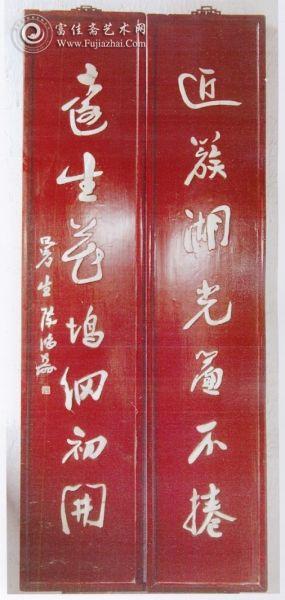 富佳斋艺术网
www.Fujiazhai.com
近簇湖光簾不捲
遠生花塢網初開
曼生陳鴻壽